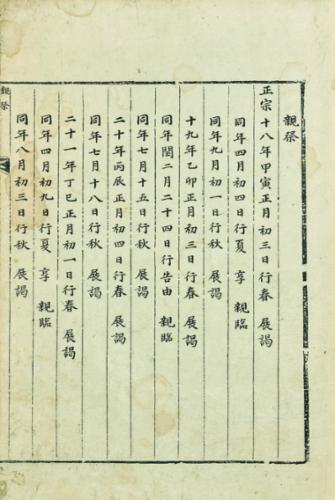 親祭
正宗十八年甲寅正月初三日行春 展謁
同年四月初四日行夏 享 親臨
同年九月初一日行秋 展謁
十九年乙卯正月初三日行春 展謁
同年閏二月二十四日行告由 親臨
同年七月十五日行秋 展謁
二十年丙辰正月初四日行春 展謁
同年七月十八日行秋 展謁
二十一年丁巳正月初一日行春 展謁
同年四月初九日行夏 享 親臨
同年八月初三日行秋 展謁
親祭